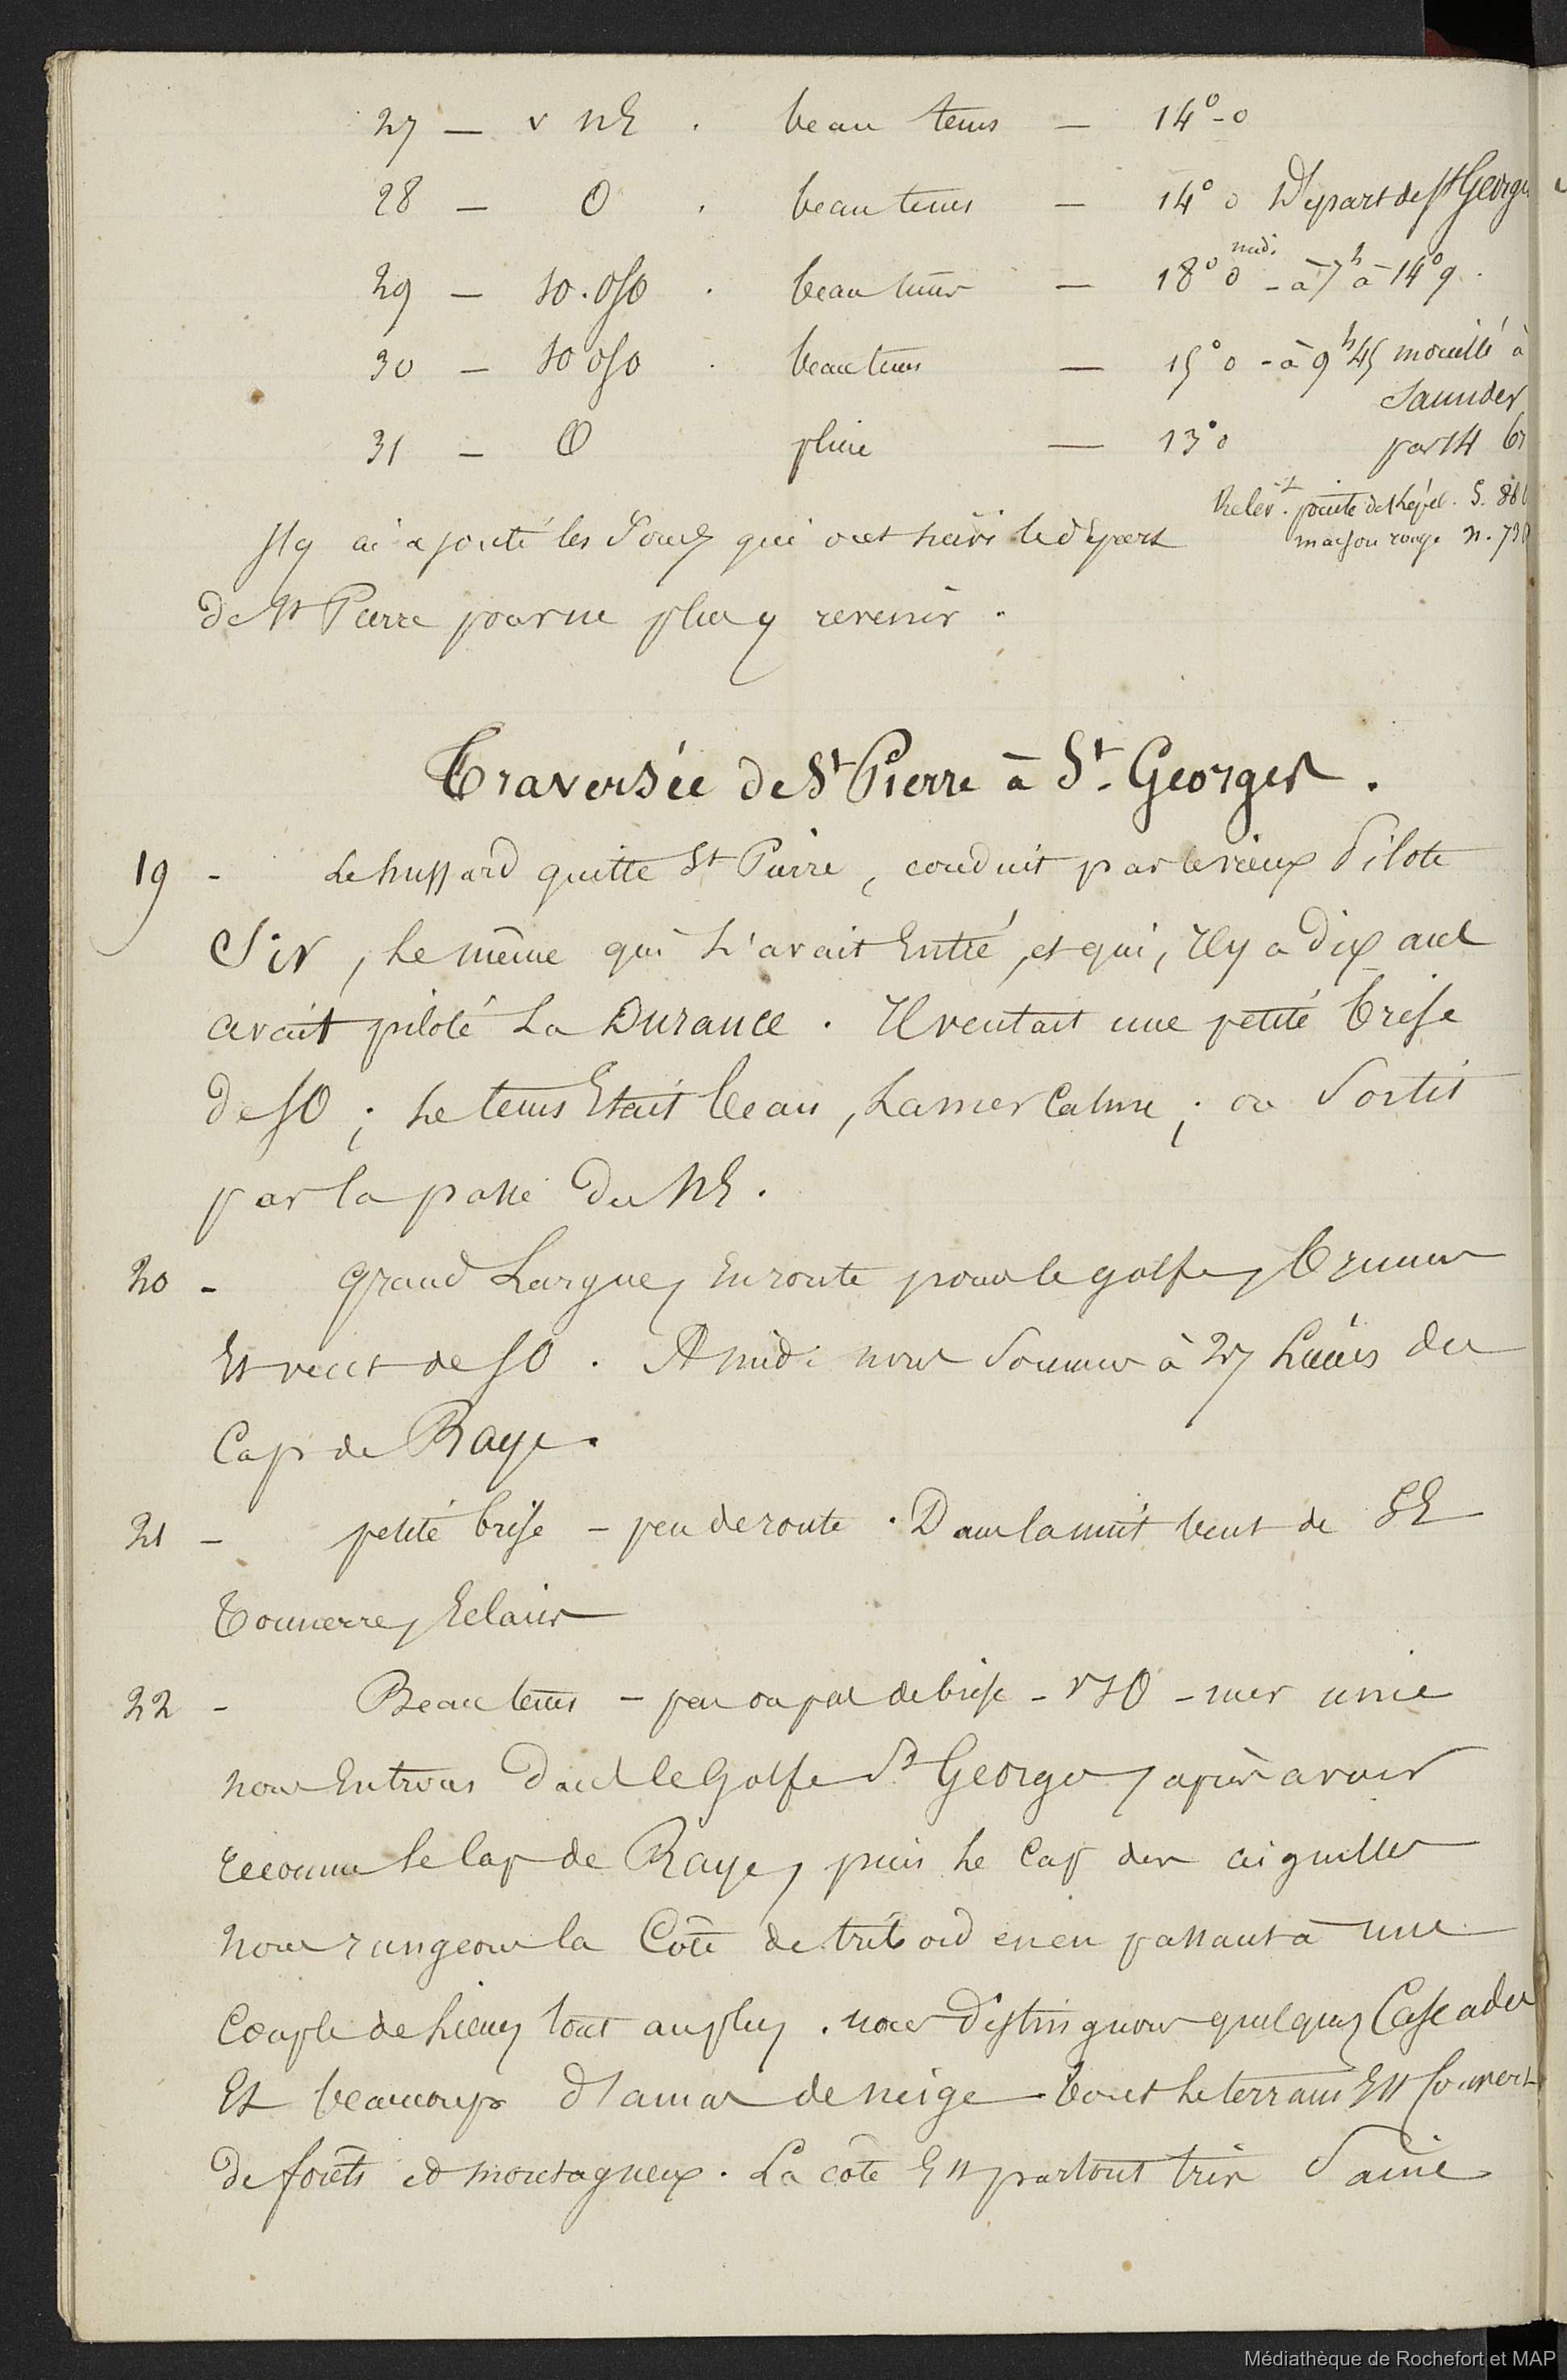 27 — v NE . beau tems — 14° - 0
28 — O . beau tems — 14° 0 Départ de St George
29 — SO. OSO . beau tems — 18° 0 midi - à 7h à 14° 9 .
30 — SO OSO . beau tems — 15° 0 - à 9h 45 mouillé à
Saunder
31 — O pluie — 13° 0 par 14 br
Relev.t pointe de S. 86
maison rouge N. 73
J'y ai ajouté les jours qui ont suivi le départ
de St Pierre pour ne plus y revenir .
Traversée de St Pierre à St Georges .
19 - Le hussard quitte St Pierre, conduit par le vieux Pilote
Siv, le même qui l'avait Entré, et qui, Il y a dix ans
avait piloté La Durance . Il ventait une petite brise
de SO ; Le tems Etait beau, La mer Calme ; on Sortit
par la passe Du NE .
20 - Grand Largue, En route pour le golfe, brume
Et vent de SO . A midi nous Sommes à 27 Lieües du
Cap de Raye .
21 - petite brise - peu de route . Dans la nuit vent de SE
Tonnerre, Eclairs
22 - Beau tems - peu ou pas de brise - v SO - mer unie
nous Entrons Dans le Golfe St George, après avoir
reconnu le Cap de Raye, puis Le Cap des aiguilles
Nous rangeons la Côte de tribord en en passant à une
Couple de Lieues tout au plus . nous Distinguons quelques Cascades
Et beaucoup d'amas de neige tout le terrain Est Couvert
de forêts et montagneux . La côte Est partout très Saine
Médiathèque de Rochefort et MAP